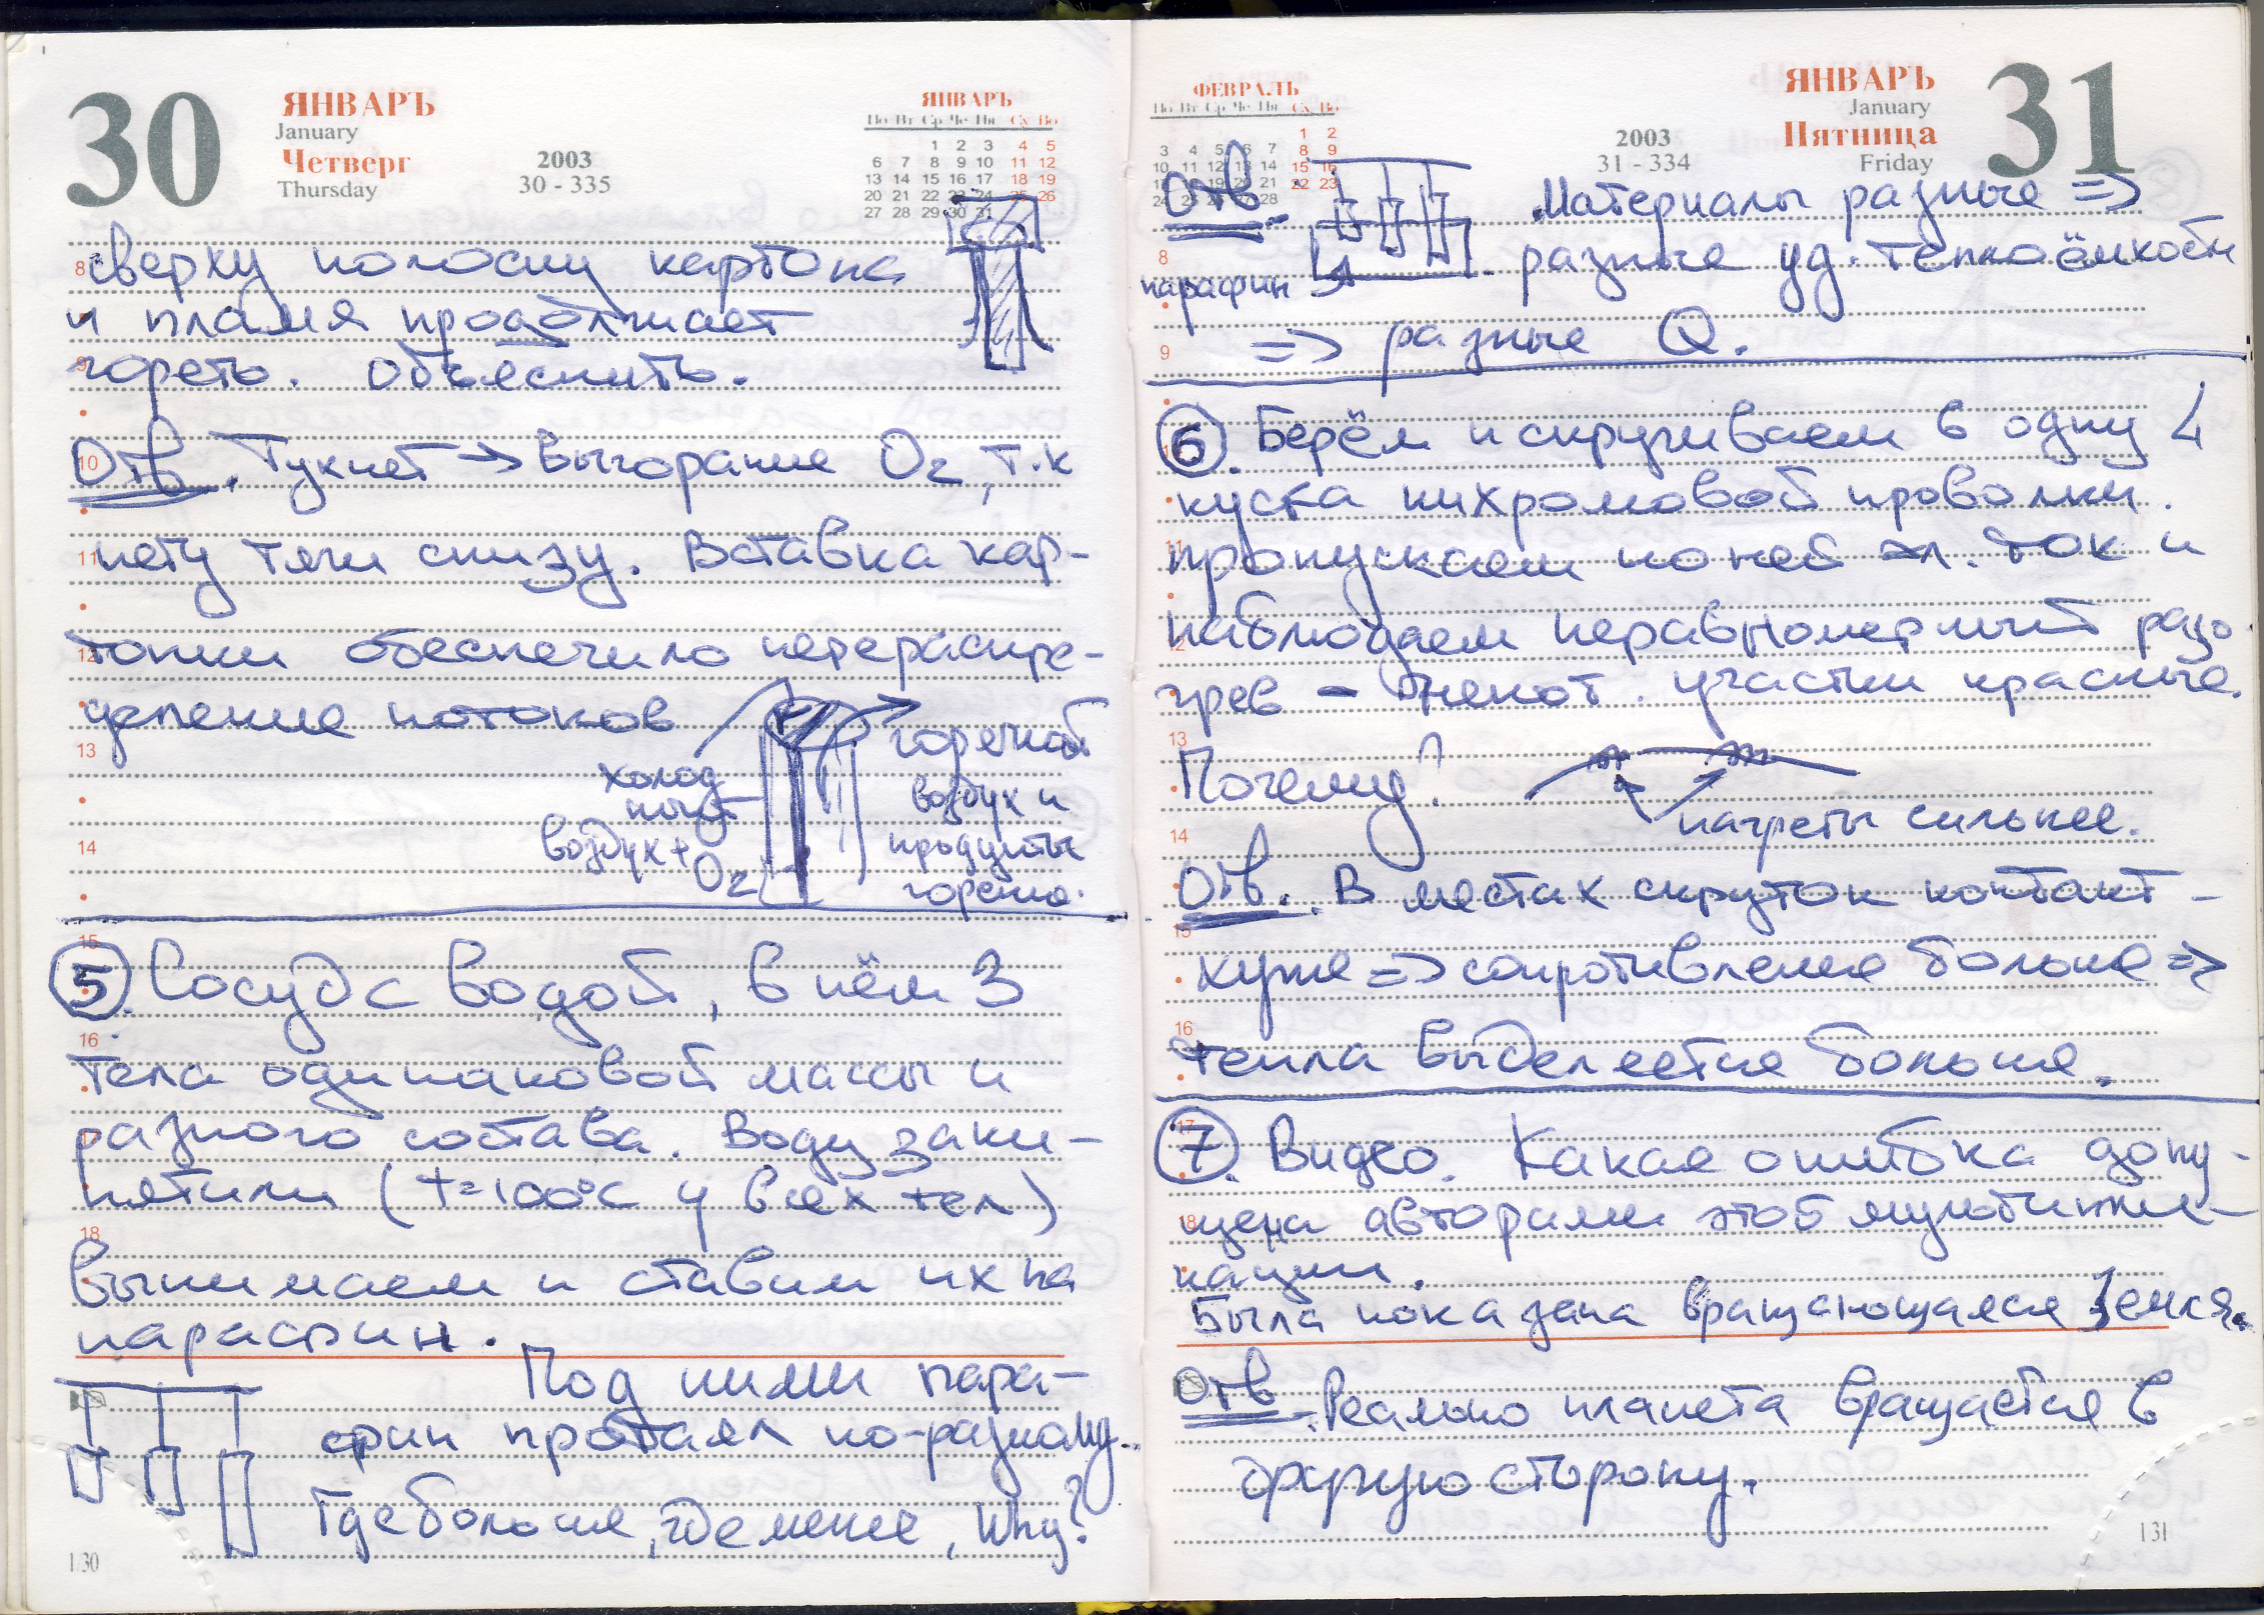 30
ЯНВАРЪ
January
Четверг
Thursday
2003
30 - 335
ЯНВАРЪ
По Вт Ср Че Пя Су Во
1 2 3 4 5
6 7 8 9 10 11 12
13 14 15 16 17 18 19
20 21 22 23 24 25 26
27 28 29 30 31
сверху полоску картона
и пламя продолжает
гореть. Объяснить.
Отв. Тухнет → выгорание O2, т.к
нету тяги снизу. Вставка кар-
тонки обеспечило перераспре-
деление потоков
холод
ный
воздух + O2
горячий
воздух и
продукты
горения.
5. Сосуд с водой, в нём 3
тела одинаковой массы и
разного состава. Воду заки-
пятили (t=100°C у всех тел)
вынимаем и ставим их на
парафин.
Под ними пара-
фин протаял по-разному..
Где больше, где менее, Why?
130
ФЕВРАЛЬ
По Вт Ср Че Пя Су Во
1 2
3 4 5 6 7 8 9
10 11 12 13 14 15 16
19 20 21 22 23
24 28
2003
31 - 334
ЯНВАРЪ
January
Пятница
Friday
31
Отв.
парафин
Материалы разные =>
разные уд. теплоёмкости
=> разные Q.
6. Берём и скручиваем в одну 4
куска нихромовой проволки.
пропускаем по ней эл. ток и
наблюдаем неравномерный разо
грев - некот. участки красные.
Почему?
нагреты сильнее.
Отв. В местах скруток контакт -
хуже => сопротивление больше =>
тепла выделяется больше.
7. Видео. Какая ошибка допу-
щена авторами этой мультипли-
кации.
Была показана вращающаяся Земля.
Отв. Реально планета вращается в
другую сторону.
131